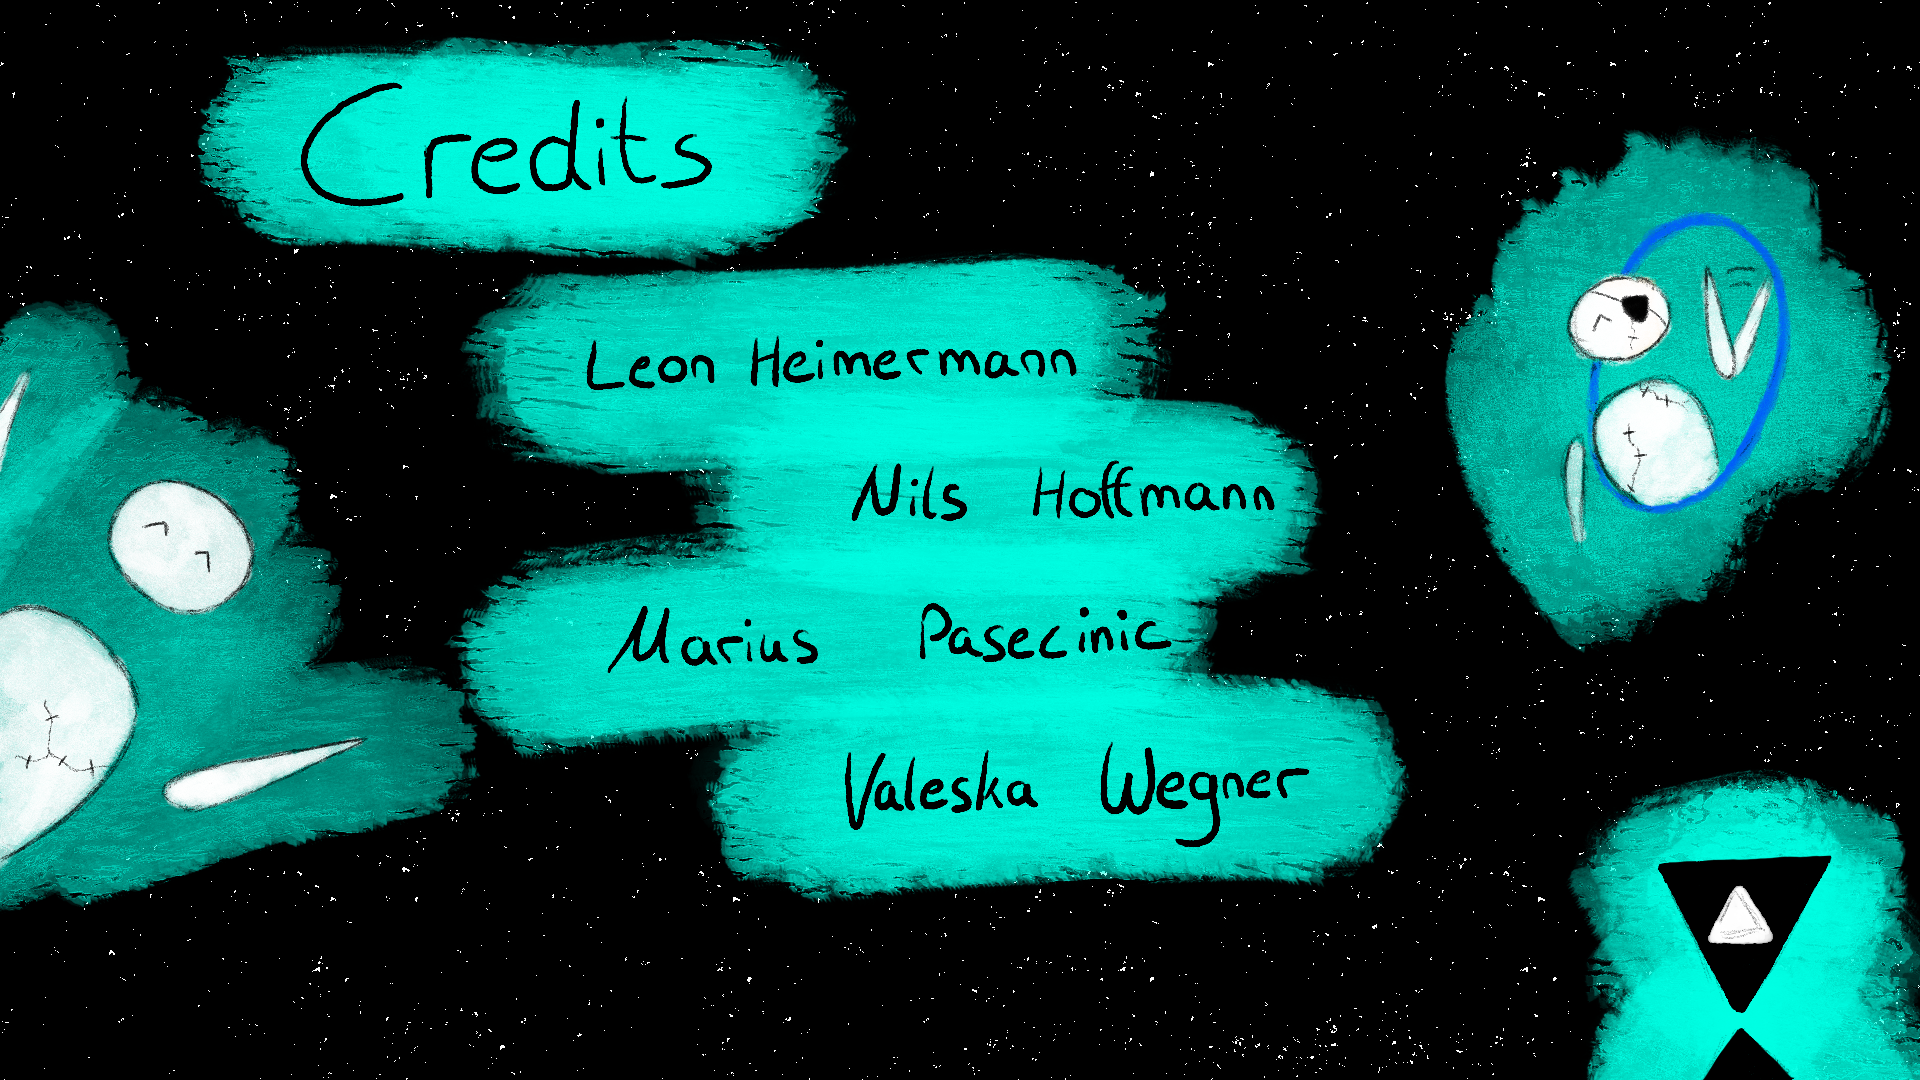 Credits
Leon Heimermann
Nils Hoffmann
Marius Pasecinic
Valeska Wegner